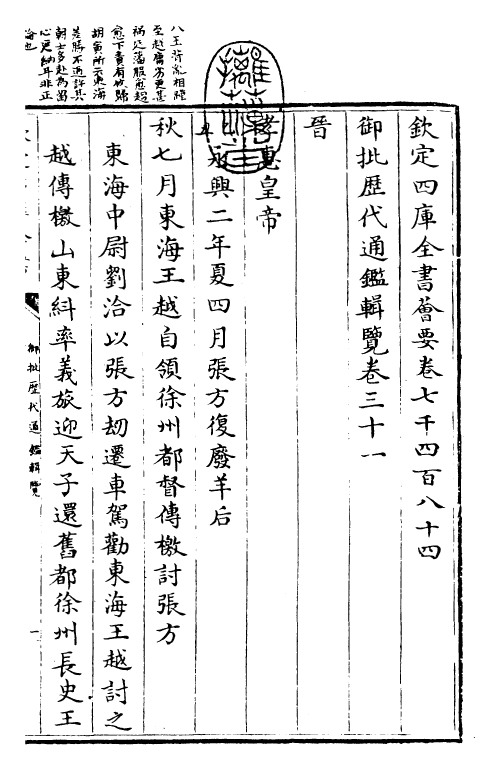 欽定四庫全書薈要卷七千四百八十四
御批歷代通鑑輯覽卷三十一
晉
孝惠皇帝
永興二年夏四月張方復廢羊后
秋七月東海王越自領徐州都督傳檄討張方
東海中尉劉洽以張方刼遷車駕勸東海王越討之
越傳檄山東糾率義旅迎天子還舊都徐州長史王
御批歷代通鑑輯覽
一
八王背亂相踵
至越庸劣更甚
禍延藩服愈趨
愈下責有攸歸
胡寅所云東海
差勝不過許其
朝士多赴為留
心更納耳非正
論也